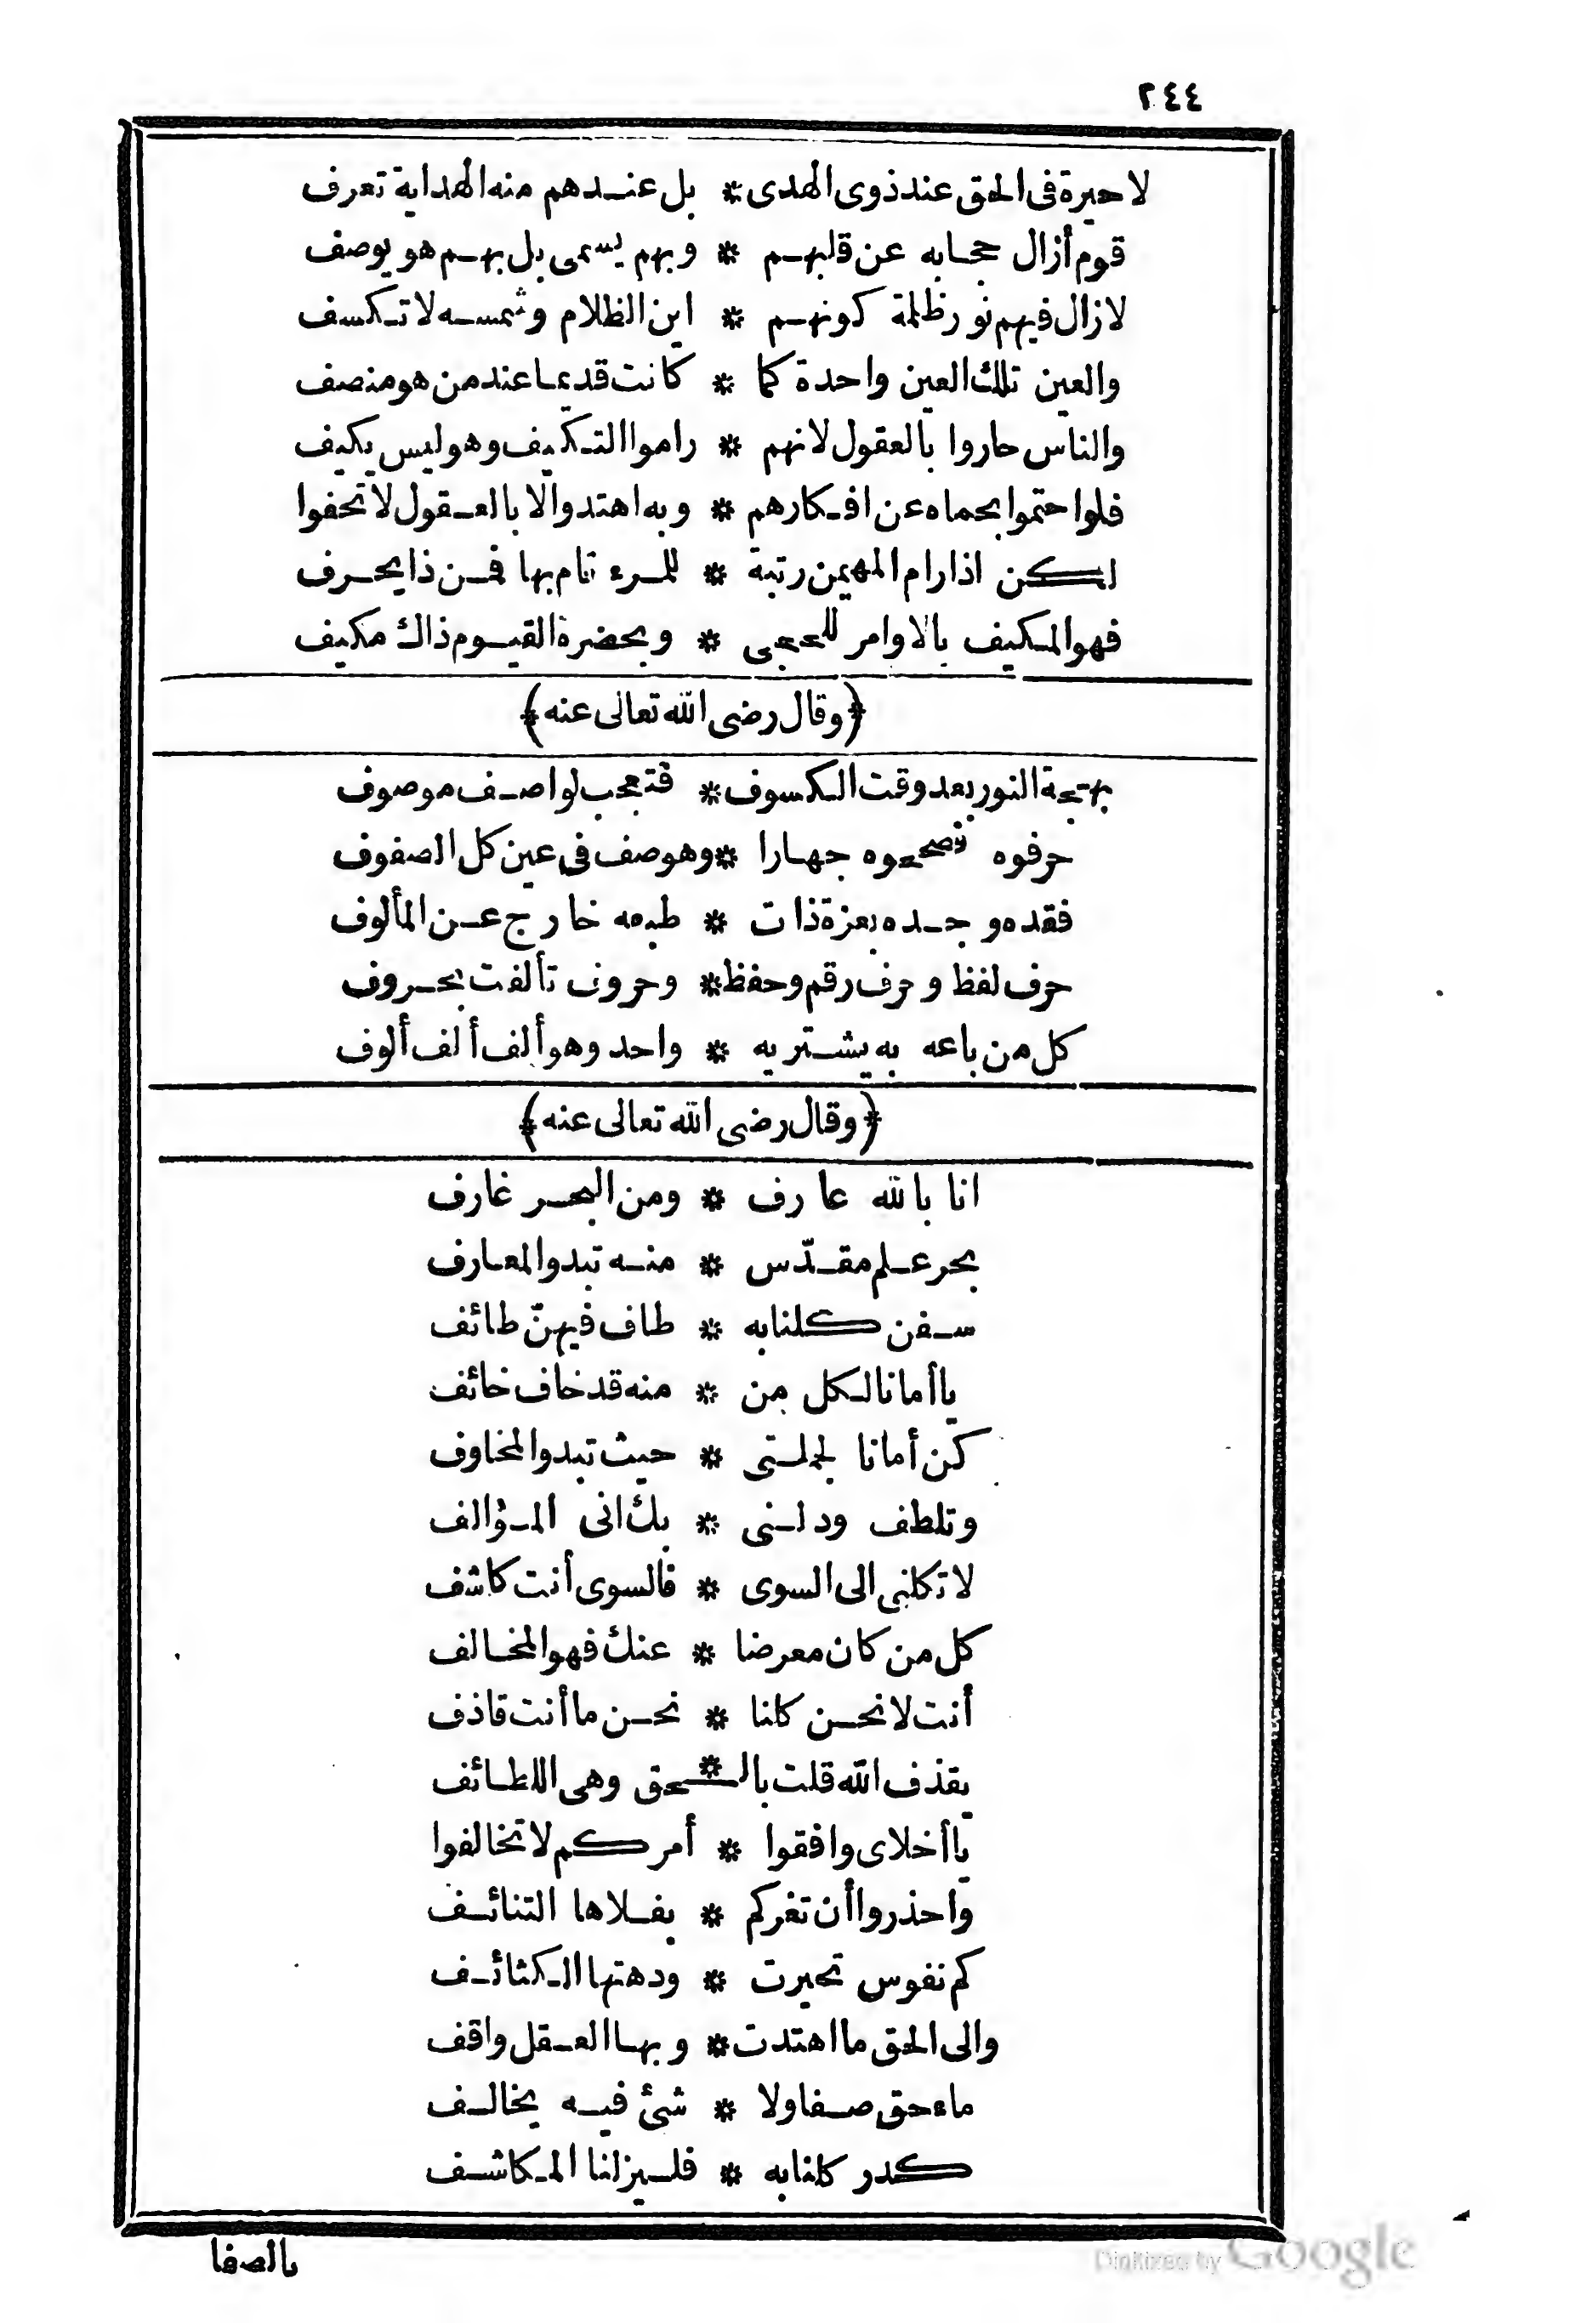 ٢٤٤
لا حيرة فى الحق عند ذوى الهدى * بل عندهم منه الهداية تعرف
قوم أزال حجابه عن قلبهم * وبهم يسمى بل بهم هو يوصف
لازال فيهم نور ظلمة كونهم * اين الظلام وشمسه لا تكسف
والعين تلك العين واحدة كما * كانت قديما عند من هو منصف
والناس حاروا بالعقول لانهم * راموا التكييف وهو ليس يكيف
فلو احتموا بحماه عن افكارهم * وبه اهتدوا لا بالعقول لا تحفوا
لكن اذا رام المهيمن رتبة * للمرء تام بها فمن ذا يحرف
فهو المكيف بالاوامر للحجى * وبحضرة القيوم ذاك مكيف
﴿وقال رضى الله تعالى عنه﴾
بهجة النور بعد وقت الكسوف * فتعجب لواصف موصوف
حرفوه فصححوه جهارا * وهو صف فى عين كل الصفوف
فقده وجده بعزة ذات * طبعه خارج عن المألوف
حرف لفظ وحرف رقم وحفظ * وحروف تألفت بحروف
كل من باعه به يشتريه * واحد وهو ألف ألف ألوف
﴿وقال رضى الله تعالى عنه﴾
انا بالله عارف * ومن البحر غارف
بحر علم مقدّس * منه تبدو المعارف
سفن كلنا به * طاف فيهنّ طائف
يا أمانا لكل من * منه قد خاف خائف
كن أمانا لجملتى * حيث تبدو المخاوف
وتلطف ودلنى * بك انى المؤالف
لا تكلنى الى السوى * فالسوى أنت كاشف
كل من كان معرضا * عنك فهو المخالف
أنت لا نحن كلنا * نحن ما أنت قاذف
يقذف الله قلت بالـ * ـحق وهى اللطائف
يا أخلاى وافقوا * أمركم لا تخالفوا
واحذروا أن تغركم * بفلاها التنائف
كم نفوس تحيرت * ودهتها الكثائف
والى الحق ما اهتدت * وبها العقل واقف
ماء حق صفا ولا * شئ فيه يخالف
كدر كلنا به * فليزلنا المكاشف
بالصفا
Digitized by Google